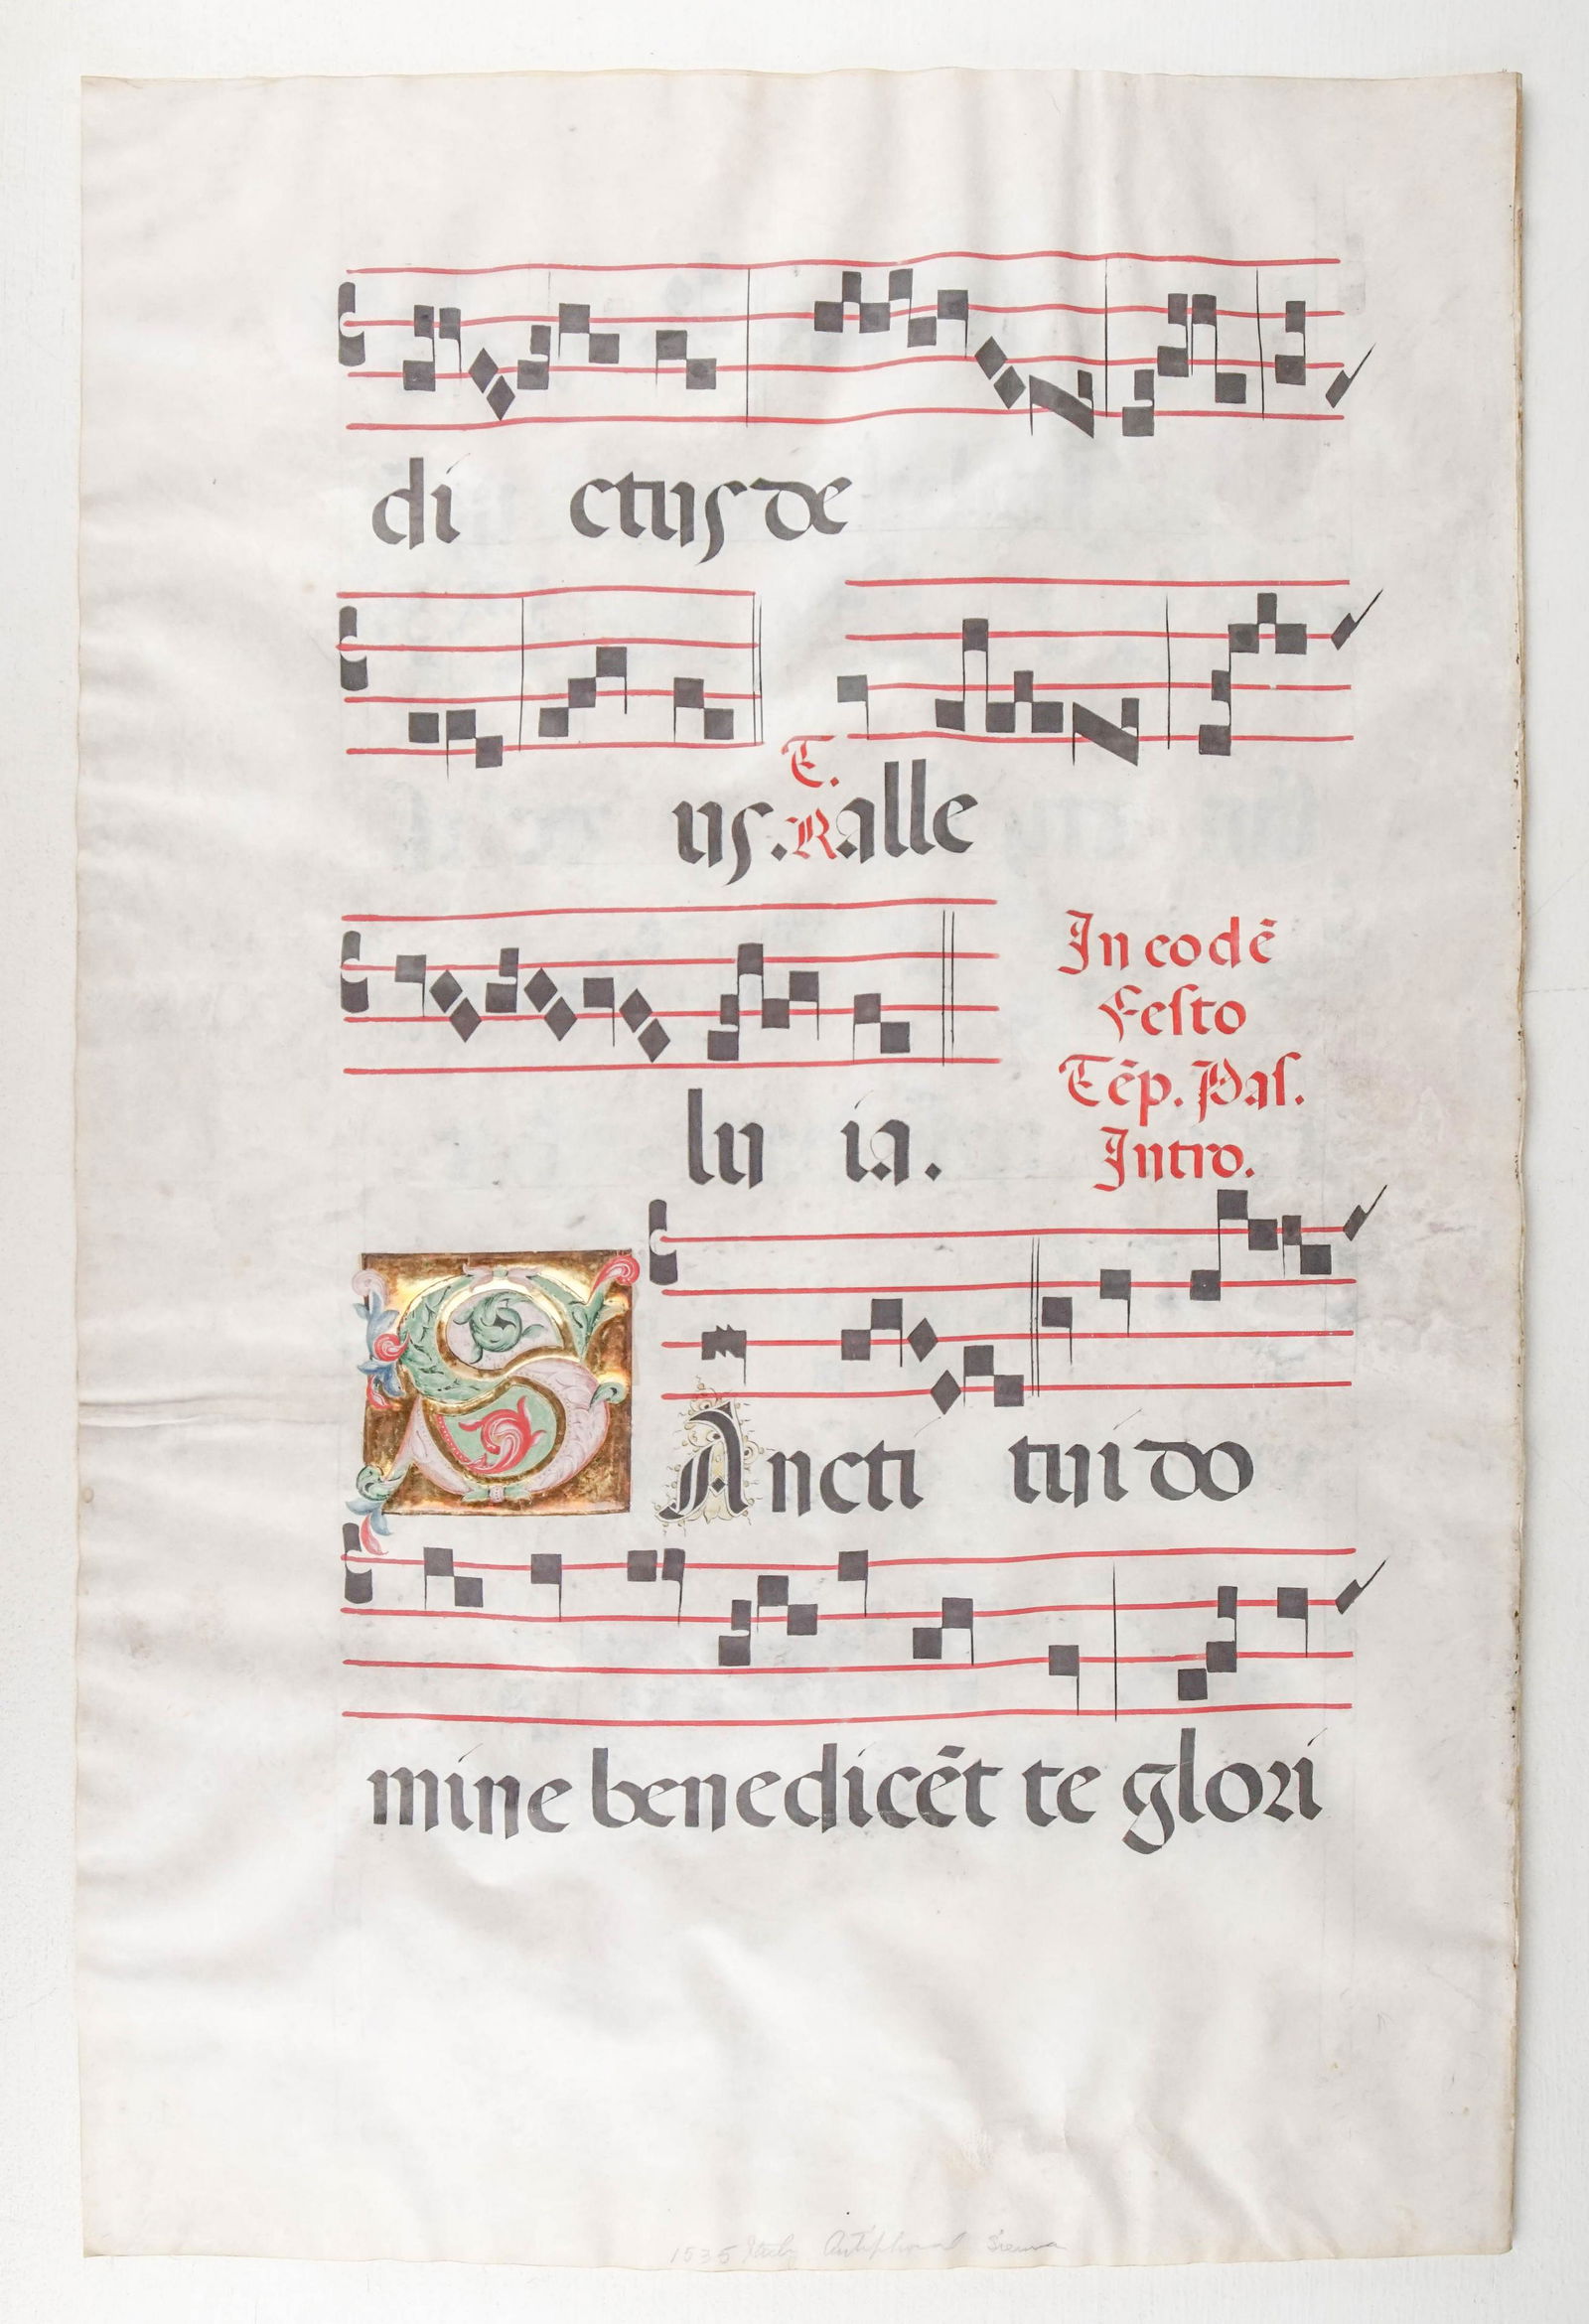 di ctus de
us. T.
R alle
lu ia.
In eodē
Festo
Tēp. Pas.
Intro.
SAncti tui do
mine benedicēt te glori
1535 Italy Antiphonal Sienna